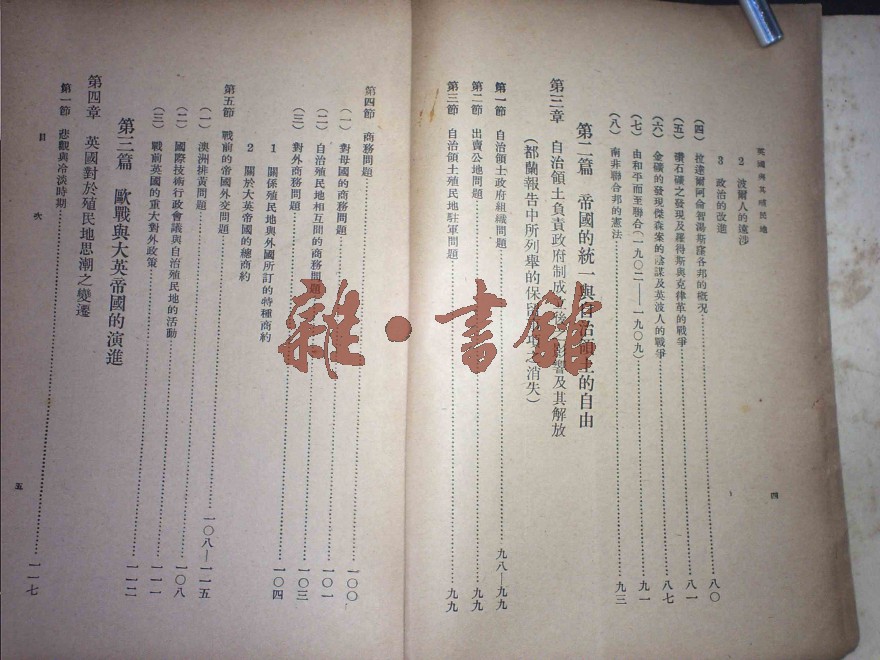 英國與其殖民地
2 波爾人的遠涉
3 政治的改進
(四) 拉達爾阿倫智湯斯窪各邦的概況……八〇
(五) 鑽石礦之發現及羅得斯與克律革的戰爭……八一
(六) 金礦的發現傑森案的陰謀及英波人的戰爭……八七
(七) 由和平而至聯合(一九〇二—一九〇九)……九一
(八) 南非聯合邦的憲法……九三
第二篇 帝國的統一與自治領土的自由
第三章 自治領土負責政府制成立後之影響及其解放
(都蘭報告中所列舉的保留 之消失)
第一節 自治領土政府組織問題……九八—九九
第二節 出賣公地問題……九九
第三節 自治領土殖民地駐軍問題……九九
四
第四節 商務問題
(一) 對母國的商務問題……一〇〇
(二) 自治殖民地相互間的商務問題……一〇一
(三) 對外商務問題……一〇三
1 關係殖民地與外國所訂的特種商約……一〇四
2 關於大英帝國的總商約
第五節 戰前的帝國外交問題……一〇八—一一五
(一) 澳洲排黃問題
(二) 國際技術行政會議與自治殖民地的活動……一〇八
(三) 戰前英國的重大對外政策……一一一
第三篇 歐戰與大英帝國的演進……一一二
第四章 英國對於殖民地思潮之變遷
第一節 悲觀與冷淡時期……一一七
目次
五
雜·書館